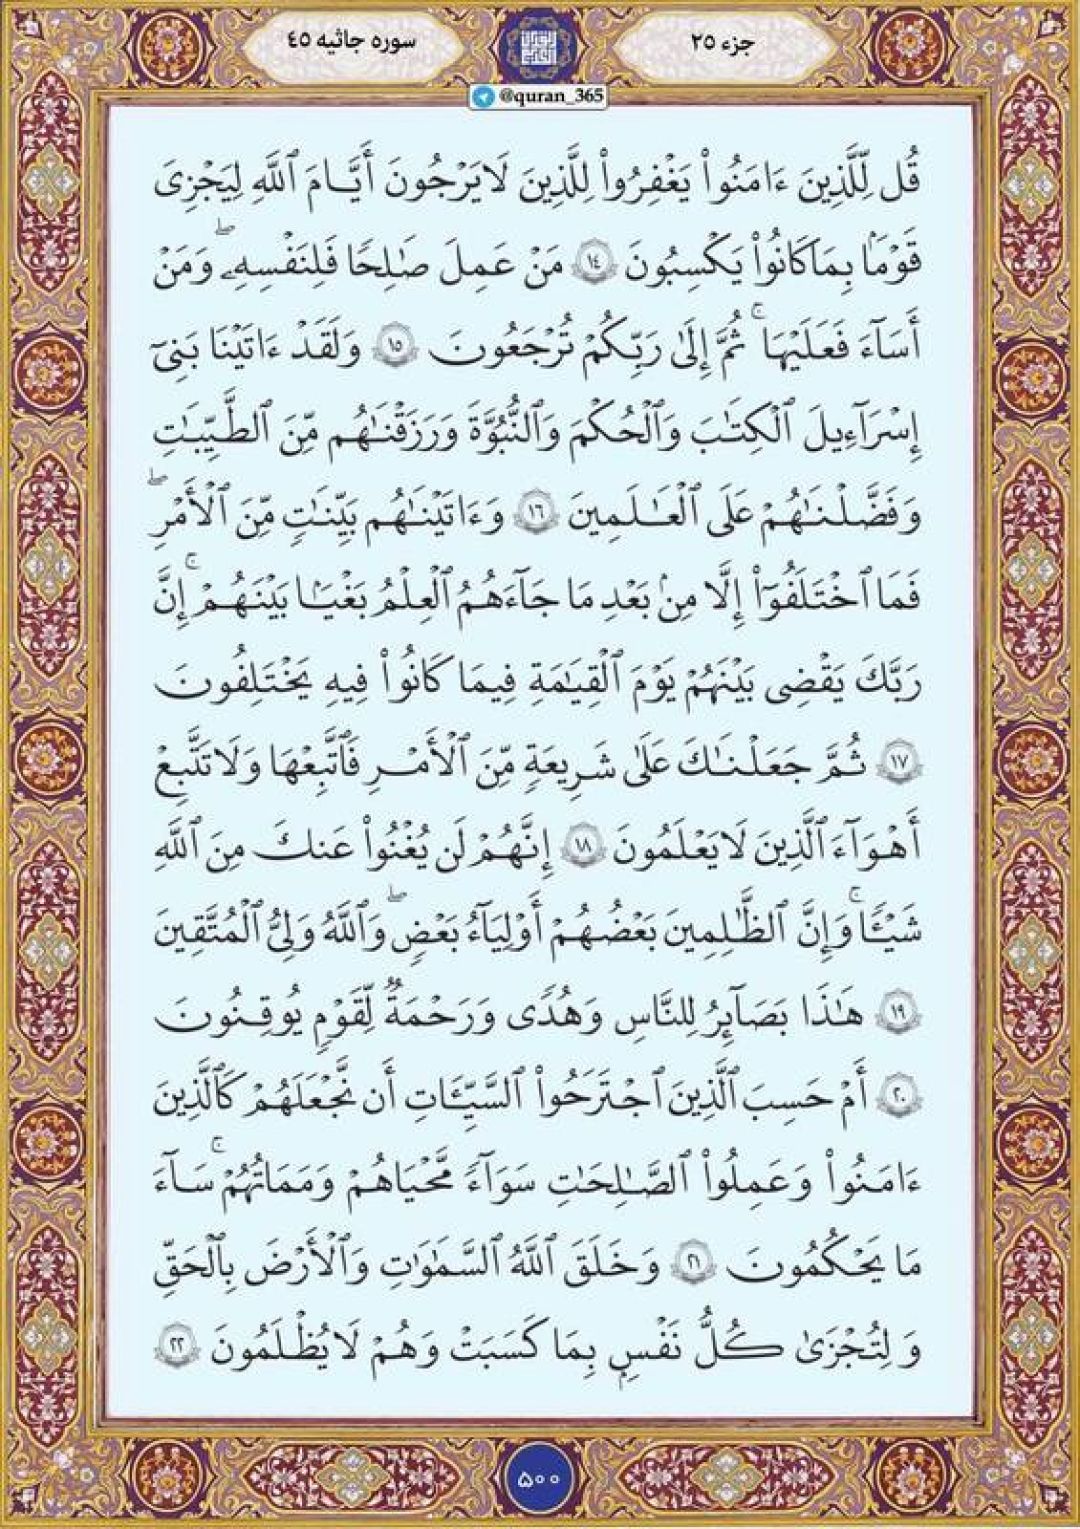 جزء ۲۵
سوره جاثیه ۴۵
@quran_365
قُل لِّلَّذِينَ ءَامَنُواْ يَغْفِرُواْ لِلَّذِينَ لَايَرْجُونَ أَيَّامَ ٱللَّهِ لِيَجْزِىَ
قَوْمَۢا بِمَاكَانُواْ يَكْسِبُونَ ١٤ مَنْ عَمِلَ صَٰلِحًا فَلِنَفْسِهِۦۖ وَمَنْ
أَسَآءَ فَعَلَيْهَاۚ ثُمَّ إِلَىٰ رَبِّكُمْ تُرْجَعُونَ ١٥ وَلَقَدْ ءَاتَيْنَا بَنِىٓ
إِسْرَآءِيلَ ٱلْكِتَٰبَ وَٱلْحُكْمَ وَٱلنُّبُوَّةَ وَرَزَقْنَٰهُم مِّنَ ٱلطَّيِّبَٰتِ
وَفَضَّلْنَٰهُمْ عَلَى ٱلْعَٰلَمِينَ ١٦ وَءَاتَيْنَٰهُم بَيِّنَٰتٍ مِّنَ ٱلْأَمْرِۖ
فَمَا ٱخْتَلَفُوٓاْ إِلَّا مِنۢ بَعْدِ مَا جَآءَهُمُ ٱلْعِلْمُ بَغْيَۢا بَيْنَهُمْۚ إِنَّ
رَبَّكَ يَقْضِى بَيْنَهُمْ يَوْمَ ٱلْقِيَٰمَةِ فِيمَا كَانُواْ فِيهِ يَخْتَلِفُونَ
١٧ ثُمَّ جَعَلْنَٰكَ عَلَىٰ شَرِيعَةٍ مِّنَ ٱلْأَمْرِ فَٱتَّبِعْهَا وَلَاتَتَّبِعْ
أَهْوَآءَ ٱلَّذِينَ لَايَعْلَمُونَ ١٨ إِنَّهُمْ لَن يُغْنُواْ عَنكَ مِنَ ٱللَّهِ
شَيْـًٔاۚ وَإِنَّ ٱلظَّٰلِمِينَ بَعْضُهُمْ أَوْلِيَآءُ بَعْضٍۖ وَٱللَّهُ وَلِىُّ ٱلْمُتَّقِينَ
١٩ هَٰذَا بَصَٰٓئِرُ لِلنَّاسِ وَهُدًى وَرَحْمَةٌ لِّقَوْمٍ يُوقِنُونَ
٢٠ أَمْ حَسِبَ ٱلَّذِينَ ٱجْتَرَحُواْ ٱلسَّيِّـَٔاتِ أَن نَّجْعَلَهُمْ كَٱلَّذِينَ
ءَامَنُواْ وَعَمِلُواْ ٱلصَّٰلِحَٰتِ سَوَآءً مَّحْيَاهُمْ وَمَمَاتُهُمْۚ سَآءَ
مَا يَحْكُمُونَ ٢١ وَخَلَقَ ٱللَّهُ ٱلسَّمَٰوَٰتِ وَٱلْأَرْضَ بِٱلْحَقِّ
وَلِتُجْزَىٰ كُلُّ نَفْسٍۭ بِمَا كَسَبَتْ وَهُمْ لَايُظْلَمُونَ ٢٢
۵۰۰